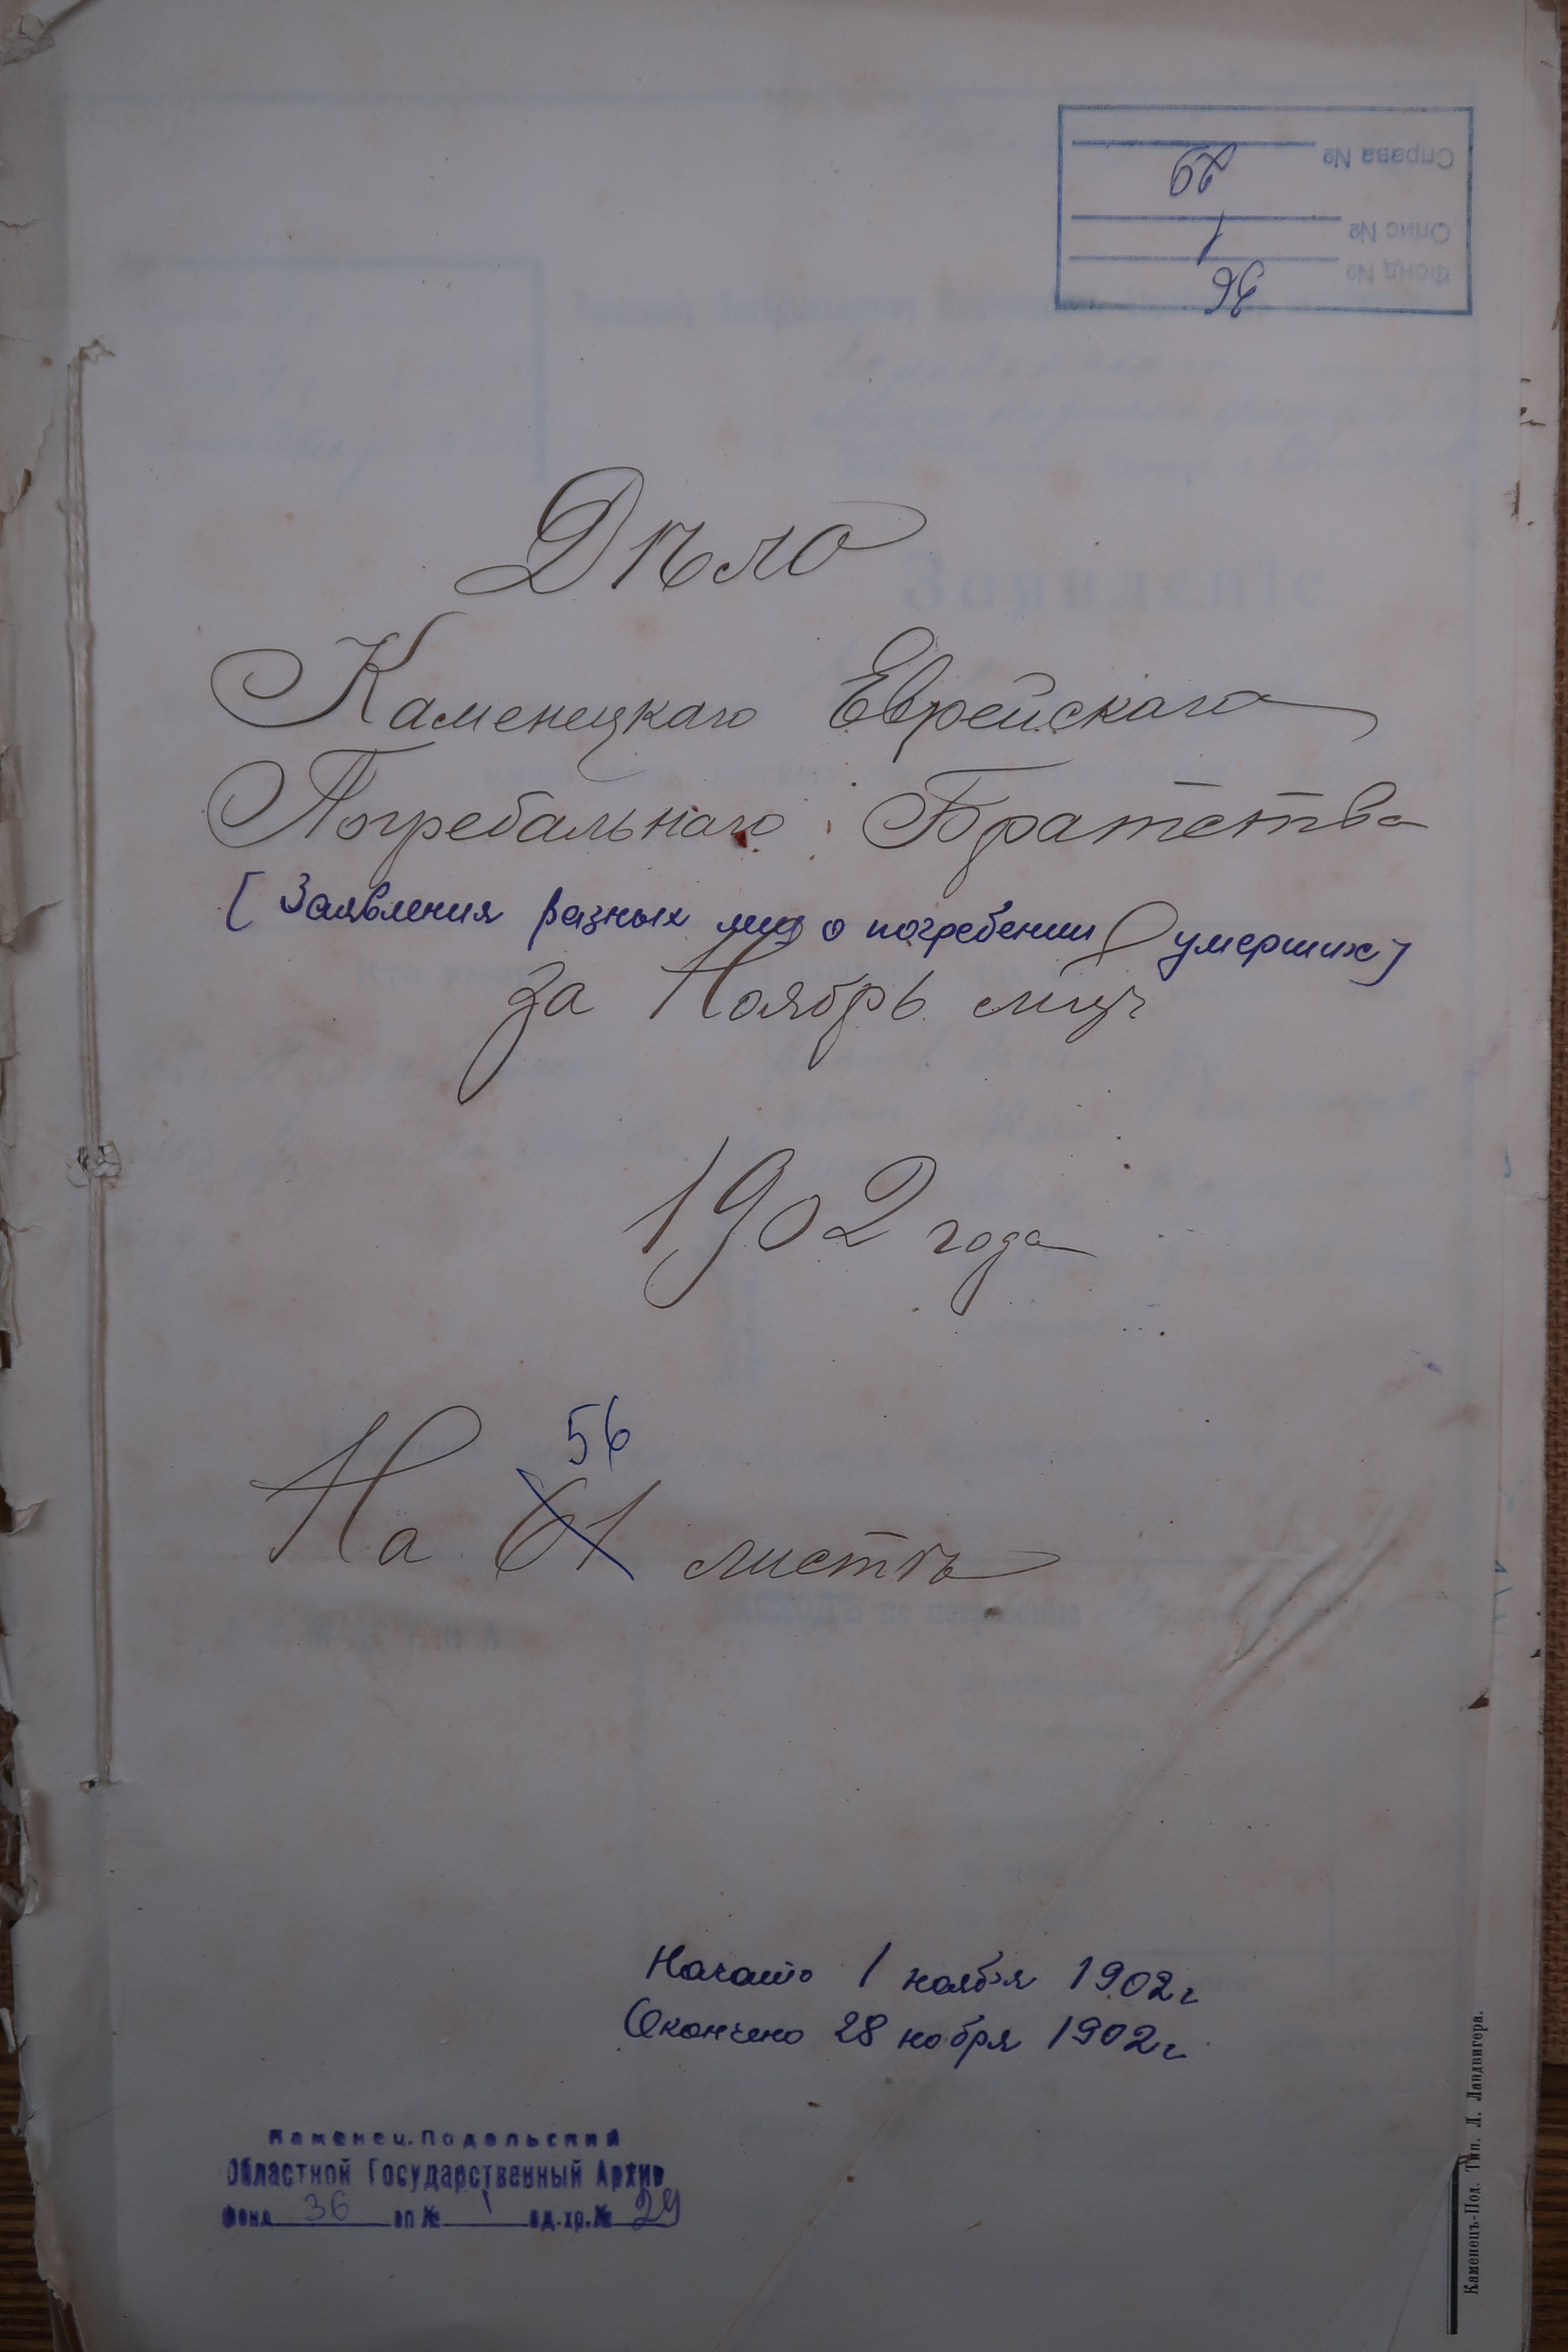 Справа № 29
Опис № 1
Фонд № 36
Дѣло
Каменецкаго Еврейскаго
Погребальнаго Братства
[Заявления разных лиц о погребении умерших]
за Ноябрь мѣць
1902 года
56
На 61 листѣ
Начато 1 ноября 1902 г
Окончено 28 ноября 1902 г
Каменец-Подольский
Областной Государственный Архив
Фонд 36 оп № 1 ед.хр.№ 29
Каменецъ-Под. Тип. Л. Ландвигера.